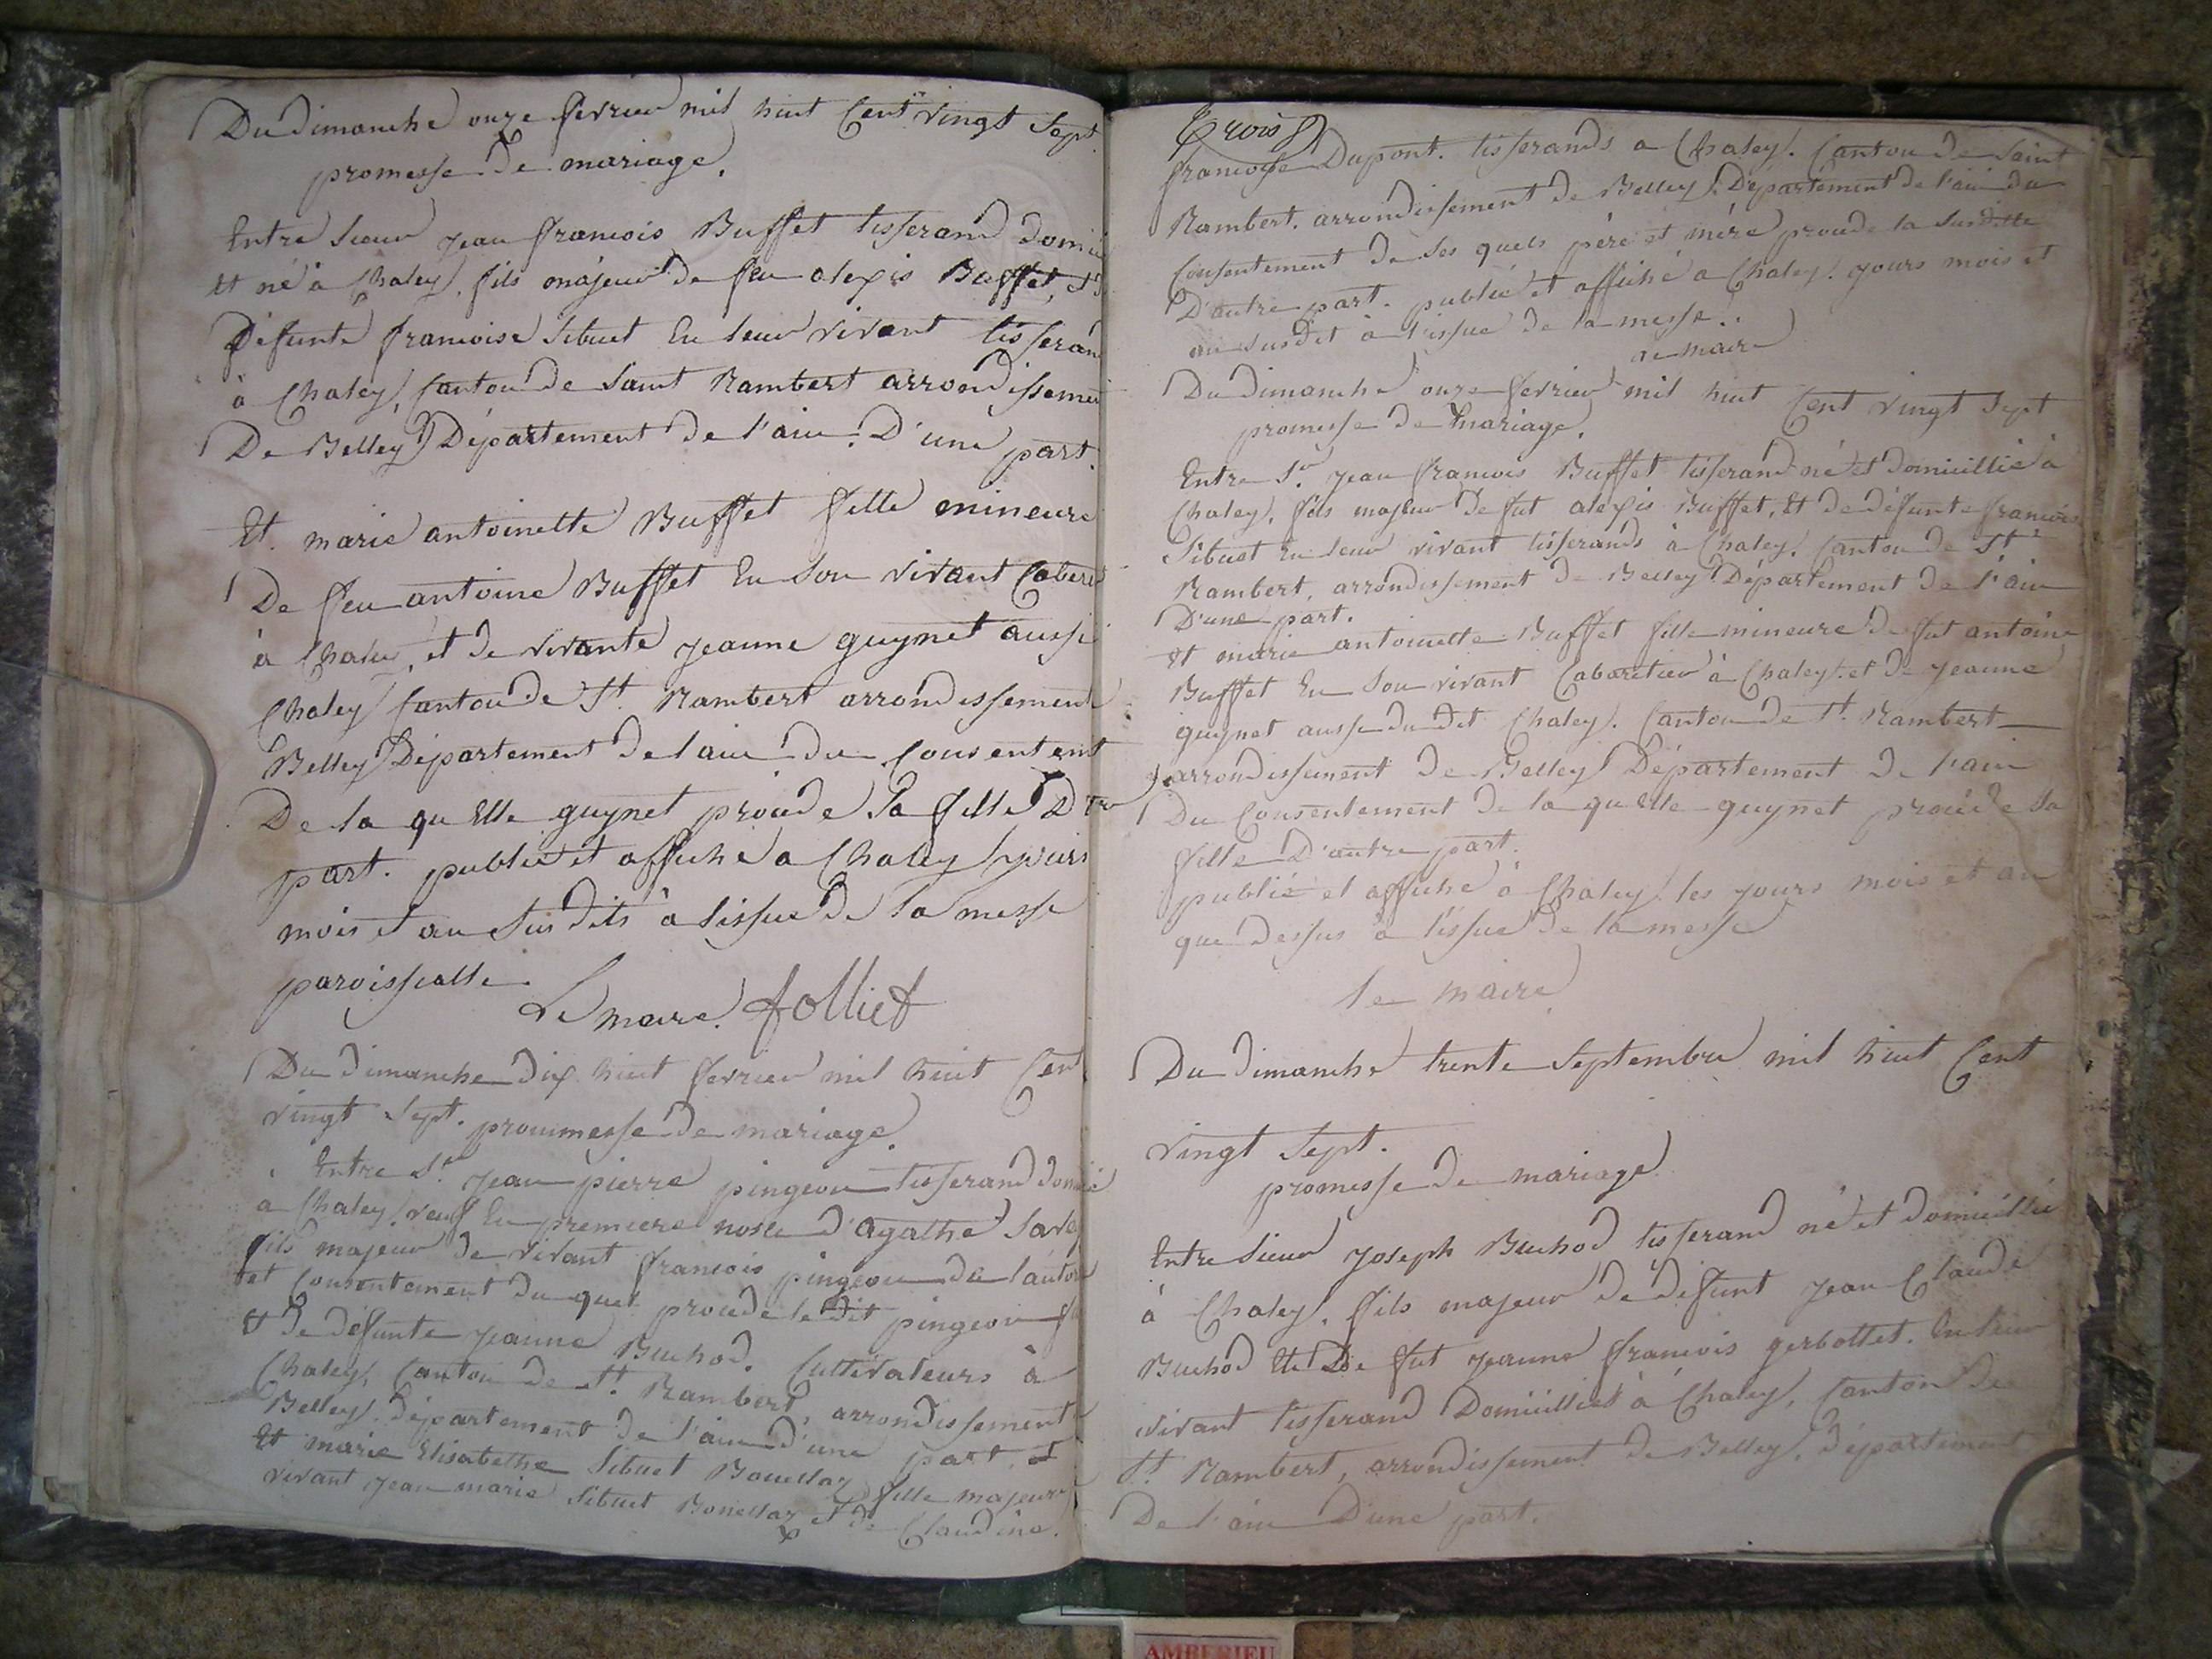 Du dimanche onze fevrier mil huit Cent vingt Sept
promesse De mariage.
Entre Sieur jean francois Buffet tisserand domici
Et né à Chaley, fils majeur de feu alexis Buffet, Et
Défunte francoise Sibuet En leur vivant tisserand
à Chaley, Canton de Saint Rambert arrondissement
De Belley Département De l'ain. D'une part.
Et. marie antoinette Buffet fille mineure
De feu antoine Buffet En Son vivant Cabere
à Chaley, et de vivante jeanne guynet aussi
Chaley Canton de St. Rambert arrondissement
Belley Département de l'ain du Consentent
De la quElle guynet procède Sa fille D'tre
part. publié et affiché a Chaley jours
mois et an Sus dits à lissue De la messe
paroissialle.
Le maire. Jolliet
Du Dimanche Dix huit fevrier mil huit Cent
vingt Sept. proummesse De mariage.
Entre Sr. jean pierre pingeon tisserand domicié
à Chaley, veuf En premiere nosse d'agathe
fils majeur de vivant francois pingeon de l'autori
et Consentement du quel procède le dit pingeon
Et De défunte jeanne Buchod. Cultivateurs à
Chaley, Canton de St. Rambert, arrondissement
Belley. Département De l'ain d'une part. et
Et marie Elisabethe Sibuet Bouellaz fille majeure
vivant jean marie Sibuet Bonellaz et de Claudine.
Trois
francoise Dupont. tisserands a Chaley. Canton de Saint
Rambert. arrondissement de Belley. Département de l'ain du
Consentement De Ses quels père et mère procède la Susditte
D'autre part. publié et affiché a Chaley. jours mois et
an Susdit à l'issue de la messe.
Le maire
Du Dimanche onze fevrier mil huit Cent vingt Sept
promesse De mariage.
Entre Sr. jean francois Buffet tisserand né et Domicillié à
Chaley, fils majeur De fut alexis Buffet, Et de défunte francoise
Sibuet En leur vivant tisserands à Chaley. Canton de St
Rambert, arrondissement de Belley Département de l'ain
D'une part.
Et marie antoinette Buffet fille mineure de fut antoine
Buffet En Son vivant Cabaretier à Chaley. et de jeanne
guynet ausse du dit Chaley. Canton de St. Rambert
arrondissement De Belley Département De l'ain
Du Consentement De la quElle guynet procède Sa
fille D'autre part.
publié et affiché à Chaley. les jours mois et an
que dessus à l'issue de la messe
Le maire
Du Dimanche trente Septembre mil huit Cent
vingt Sept.
promesse De mariage
Entre Sieur joseph Buchod tisserand né et domicillié
à Chaley, fils majeur De défunt jean Claude
Buchod Et De fut jeanne francois gerbottet. En leur
vivant tisserand Domicilliés à Chaley, Canton De
St. Rambert, arrondissement De Belley. Département
De l'ain D'une part.
AMBERIEU